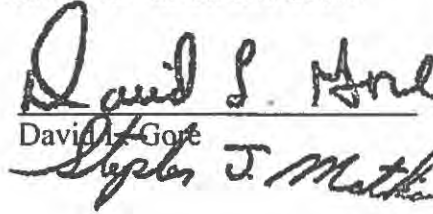 David L. Gore
David L. Gore
Stephen J.